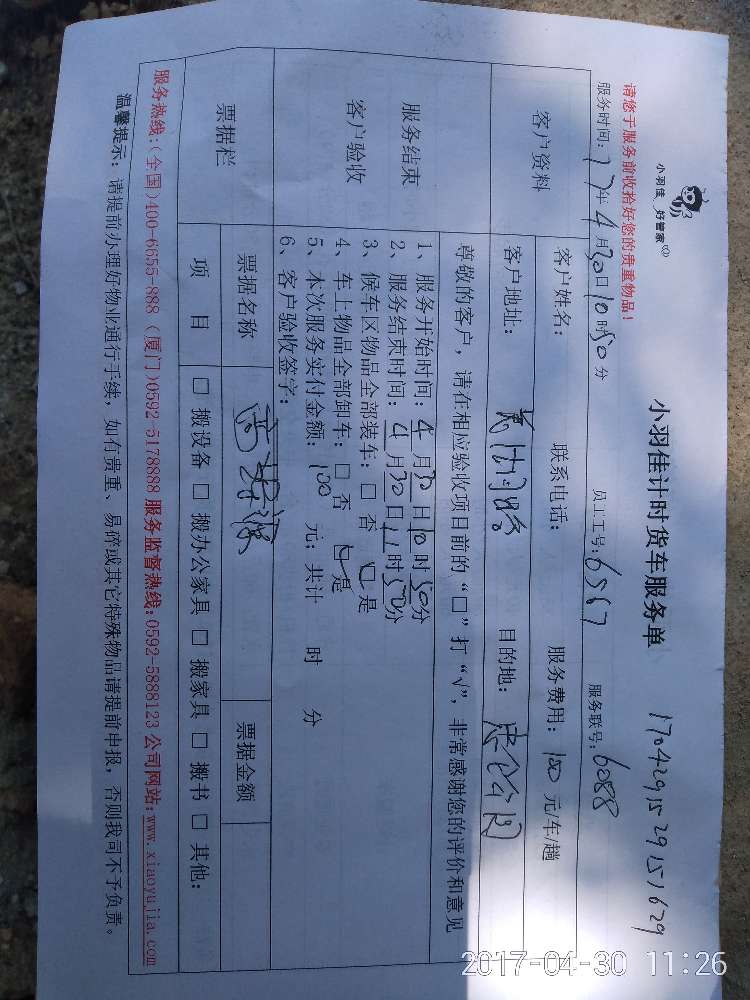 小羽佳 好管家
小羽佳计时货车服务单
请您于服务前收拾好您的贵重物品!
服务时间: 17年4月30日10时50分 员工工号: 6567 服务联号: 6088
客户资料
客户姓名: 联系电话: 服务费用: 100 元/车/趟
客户地址: 目的地:
服务结束
客户验收
尊敬的客户，请在相应验收项目前的“□”打“√”，非常感谢您的评价和意见
1、服务开始时间: 4月30日10时50分
2、服务结束时间: 4月30日11时50分
3、候车区物品全部装车: □ 否 ☑ 是
4、车上物品全部卸车: □ 否 ☑ 是
5、本次服务实付金额: 100 元; 共计 时 分
6、客户验收签字:
票据栏
票据名称 票据金额
项 目 □ 搬设备 □ 搬办公家具 □ 搬家具 □ 搬书 □ 其他:
服务热线:(全国)400-6655-888 (厦门)0592-5178888 服务监督热线:0592-5888123 公司网站:www.xiaoyujia.com
温馨提示: 请提前办理好物业通行手续，如有贵重、易碎或其它特殊物品请提前申报，否则我司不予负责。
2017-04-30 11:26